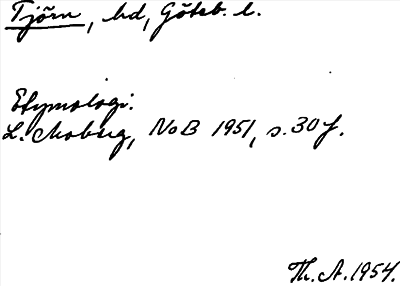 Tjörn, hd, Göteb. l.
Etymologi.
L. Moberg, NoB 1951, s. 30 f.
Th. A. 1954.